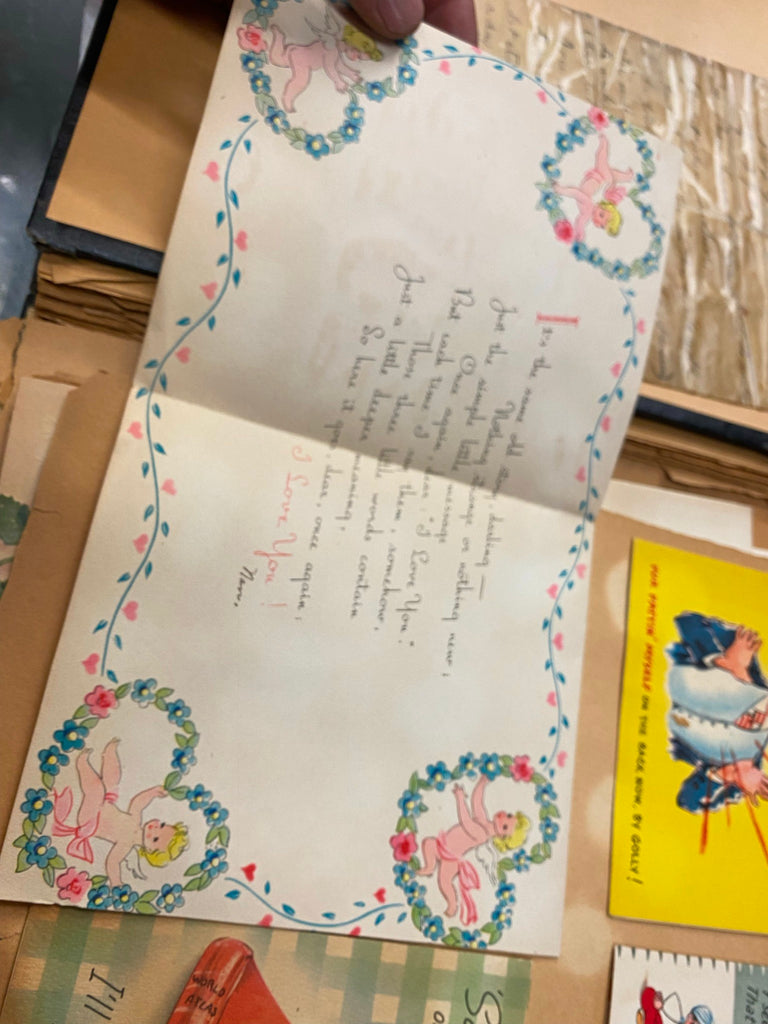 It's the same old story, darling —
Nothing strange or nothing new,
Just the simple little message
Once again, dear: "I Love You".
But each time I say them, somehow,
Those three little words contain
Just a little deeper meaning,
So here it goes, dear, once again,
I Love You!
FOR PATTIN' MYSELF ON THE BACK NOW, BY GOLLY!
I'll
WORLD
ATLAS